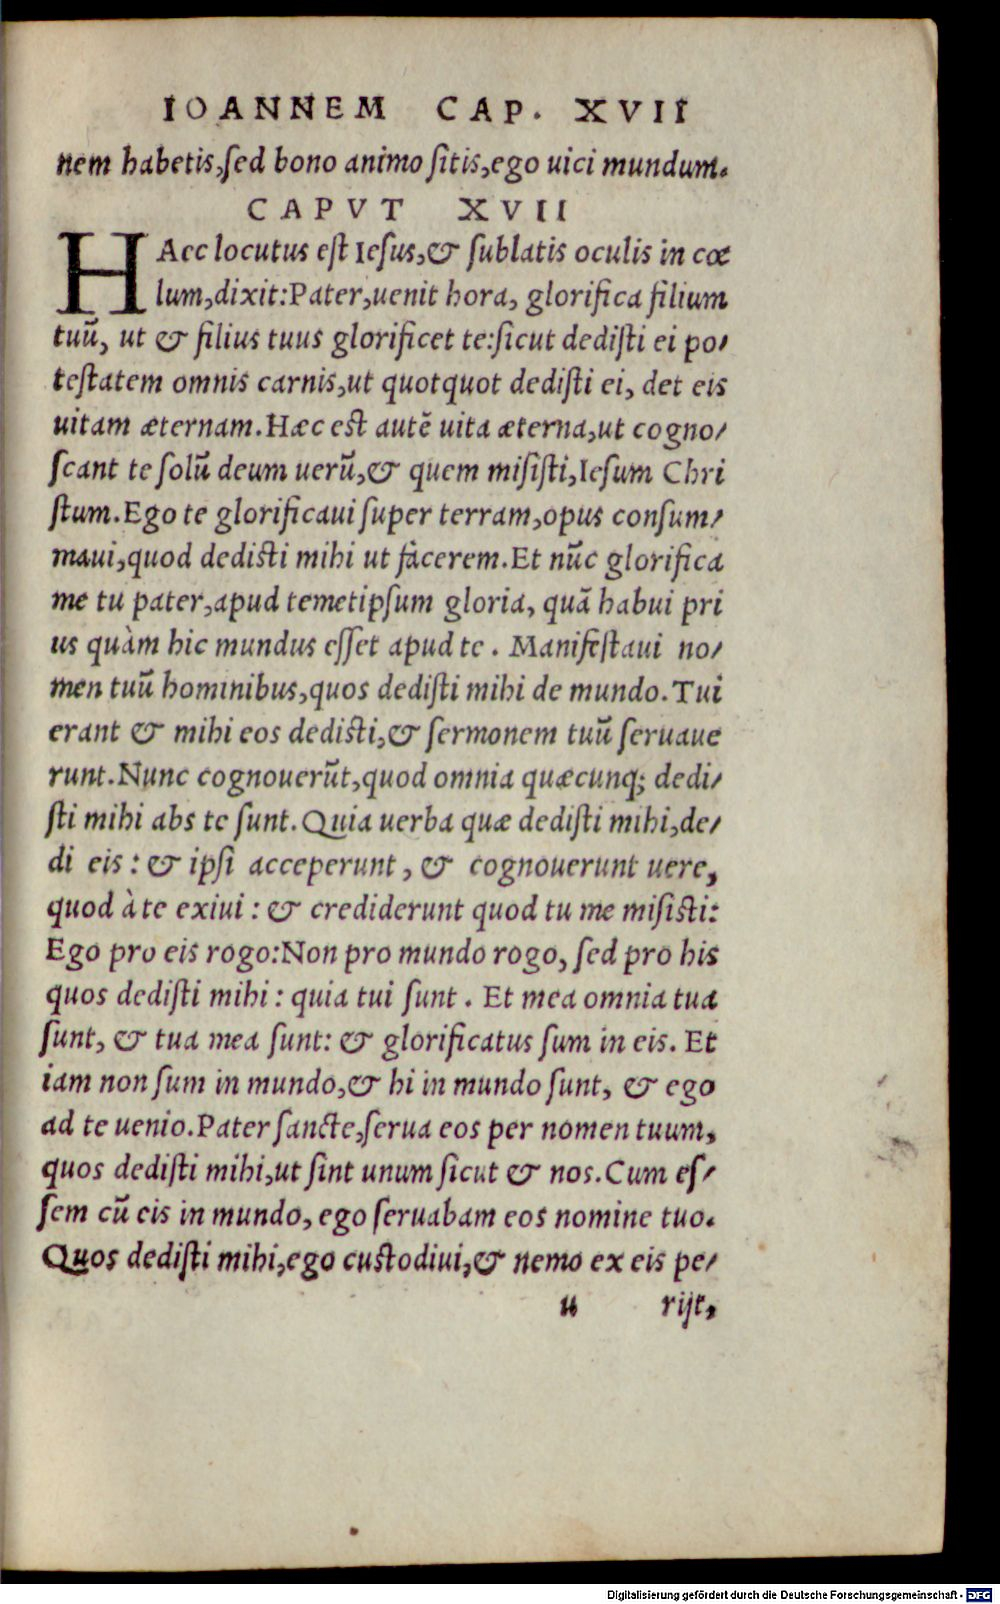 IOANNEM CAP. XVII
nem habetis,ſed bono animo ſitis,ego uici mundum.
CAPVT XVII
HAec locutus eſt Ieſus,& ſublatis oculis in cœ
lum,dixit:Pater,uenit hora, glorifica filium
tuū, ut & filius tuus glorificet te:ſicut dediſti ei po/
teſtatem omnis carnis,ut quotquot dediſti ei, det eis
uitam æternam.Hæc eſt autē uita æterna,ut cogno/
ſcant te ſolū deum uerū,& quem miſiſti,Ieſum Chri
ſtum.Ego te glorificaui ſuper terram,opus conſum/
maui,quod dediſti mihi ut facerem.Et nūc glorifica
me tu pater,apud temetipſum gloria, quā habui pri
us quàm hic mundus eſſet apud te . Manifeſtaui no/
men tuū hominibus,quos dediſti mihi de mundo.Tui
erant & mihi eos dediſti,& ſermonem tuū ſeruaue
runt.Nunc cognouerūt,quod omnia quæcunq; dedi/
ſti mihi abs te ſunt.Quia uerba quæ dediſti mihi,de/
di eis : & ipſi acceperunt , & cognouerunt uere,
quod à te exiui : & crediderunt quod tu me miſiſti:
Ego pro eis rogo:Non pro mundo rogo, ſed pro his
quos dediſti mihi : quia tui ſunt . Et mea omnia tua
ſunt, & tua mea ſunt: & glorificatus ſum in eis. Et
iam non ſum in mundo,& hi in mundo ſunt, & ego
ad te uenio.Pater ſancte,ſerua eos per nomen tuum,
quos dediſti mihi,ut ſint unum ſicut & nos.Cum eſ/
ſem cū eis in mundo, ego ſeruabam eos nomine tuo.
Quos dediſti mihi,ego cuſtodiui,& nemo ex eis pe/
u rijt,
Digitalisierung gefördert durch die Deutsche Forschungsgemeinschaft - DFG